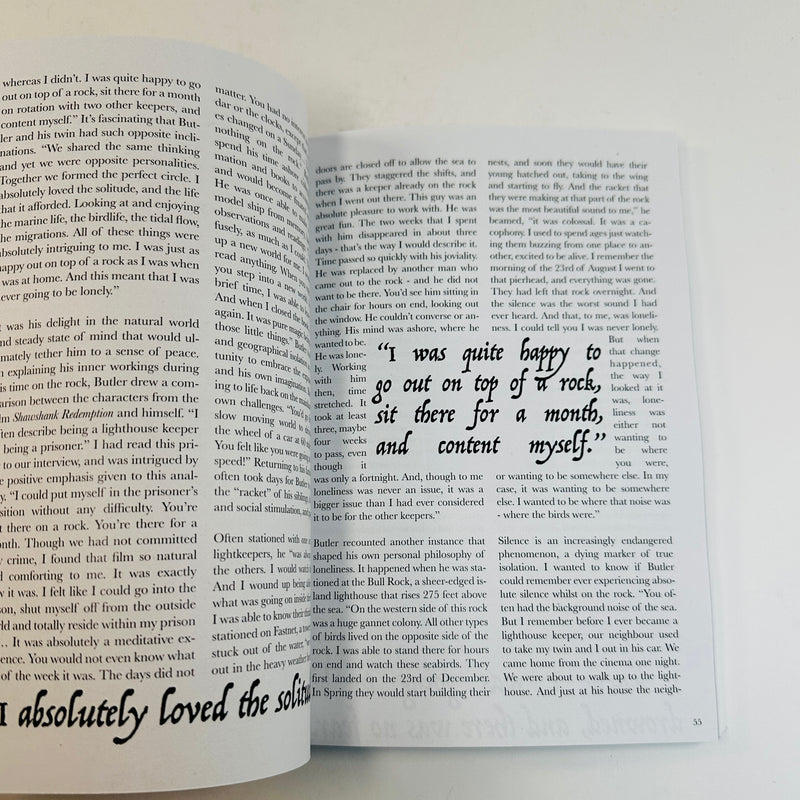 whereas I didn't. I was quite happy to go
out on top of a rock, sit there for a month
on rotation with two other keepers, and
content myself." It's fascinating that But-
ler and his twin had such opposite incli-
nations. "We shared the same thinking
and yet we were opposite personalities.
Together we formed the perfect circle. I
absolutely loved the solitude, and the life
that it afforded. Looking at and enjoying
the marine life, the birdlife, the tidal flow,
the migrations. All of these things were
absolutely intriguing to me. I was just as
happy out on top of a rock as I was when
was at home. And this meant that I was
ever going to be lonely."
was his delight in the natural world
nd steady state of mind that would ul-
mately tether him to a sense of peace.
explaining his inner workings during
is time on the rock, Butler drew a com-
arison between the characters from the
lm Shawshank Redemption and himself. "I
ften describe being a lighthouse keeper
being a prisoner." I had read this pri-
to our interview, and was intrigued by
e positive emphasis given to this anal-
y. "I could put myself in the prisoner's
sition without any difficulty. You're
t there on a rock. You're there for a
onth. Though we had not committed
crime, I found that film so natural
d comforting to me. It was exactly
w it was. I felt like I could go into the
son, shut myself off from the outside
rld and totally reside within my prison
.. It was absolutely a meditative ex-
ience. You would not even know what
of the week it was. The days did not
matter. You had no
dar or the clocks, except
es changed on a Sunday
nothing on the rock
spend his time
mation and books to
and would become
He was once able to
model ship from memory
observations and
fusely, as much as I could
up a new world for me. I
read anything. When you
you step into a new
brief time, I was able to
And when I closed the book
again. It was pure magic
those little things." Butler
and geographical isolation
tunity to embrace the
and his own imagination,
ing to life back on the
own challenges. "You'd
slow moving world to
the wheel of a car at 60
You felt like you were going
speed!" Returning to his
often took days for Butler
the "racket" of his sibling
and social stimulation, and
Often stationed with one
lightkeepers, he "was always
the others. I would watch
And I wound up being able
what was going on inside
I was able to know their
stationed on Fastnet, a tower
stuck out of the water,
out in the heavy weather
I absolutely loved the solitu
doors are closed off to allow the sea to
pass by. They staggered the shifts, and
there was a keeper already on the rock
when I went out there. This guy was an
absolute pleasure to work with. He was
great fun. The two weeks that I spent
with him disappeared in about three
days - that's the way I would describe it.
Time passed so quickly with his joviality.
He was replaced by another man who
came out to the rock - and he did not
want to be there. You'd see him sitting in
the chair for hours on end, looking out
the window. He couldn't converse or an-
ything. His mind was ashore, where he
wanted to be.
He was lone-
ly. Working
with him
then, time
stretched. It
took at least
three, maybe
four weeks
to pass, even
though it
was only a fortnight. And, though to me
loneliness was never an issue, it was a
bigger issue than I had ever considered
it to be for the other keepers."
"I was quite happy to
go out on top of a rock,
sit there for a month,
and content myself."
Butler recounted another instance that
shaped his own personal philosophy of
loneliness. It happened when he was sta-
tioned at the Bull Rock, a sheer-edged is-
land lighthouse that rises 275 feet above
the sea. "On the western side of this rock
was a huge gannet colony. All other types
of birds lived on the opposite side of the
rock. I was able to stand there for hours
on end and watch these seabirds. They
first landed on the 23rd of December.
In Spring they would start building their
nests, and soon they would have their
young hatched out, taking to the wing
and starting to fly. And the racket that
they were making at that part of the rock
was the most beautiful sound to me," he
beamed, "it was colossal. It was a ca-
cophony. I used to spend ages just watch-
ing them buzzing from one place to an-
other, excited to be alive. I remember the
morning of the 23rd of August I went to
that pierhead, and everything was gone.
They had left that rock overnight. And
the silence was the worst sound I had
ever heard. And that, to me, was loneli-
ness. I could tell you I was never lonely.
But when
that change
happened,
the way I
looked at it
was, lone-
liness was
either not
wanting to
be where
you were,
or wanting to be somewhere else. In my
case, it was wanting to be somewhere
else. I wanted to be where that noise was
- where the birds were."
Silence is an increasingly endangered
phenomenon, a dying marker of true
isolation. I wanted to know if Butler
could remember ever experiencing abso-
lute silence whilst on the rock. "You of-
ten had the background noise of the sea.
But I remember before I ever became a
lighthouse keeper, our neighbour used
to take my twin and I out in his car. We
came home from the cinema one night.
We were about to walk up to the light-
house. And just at his house the neigh-
55